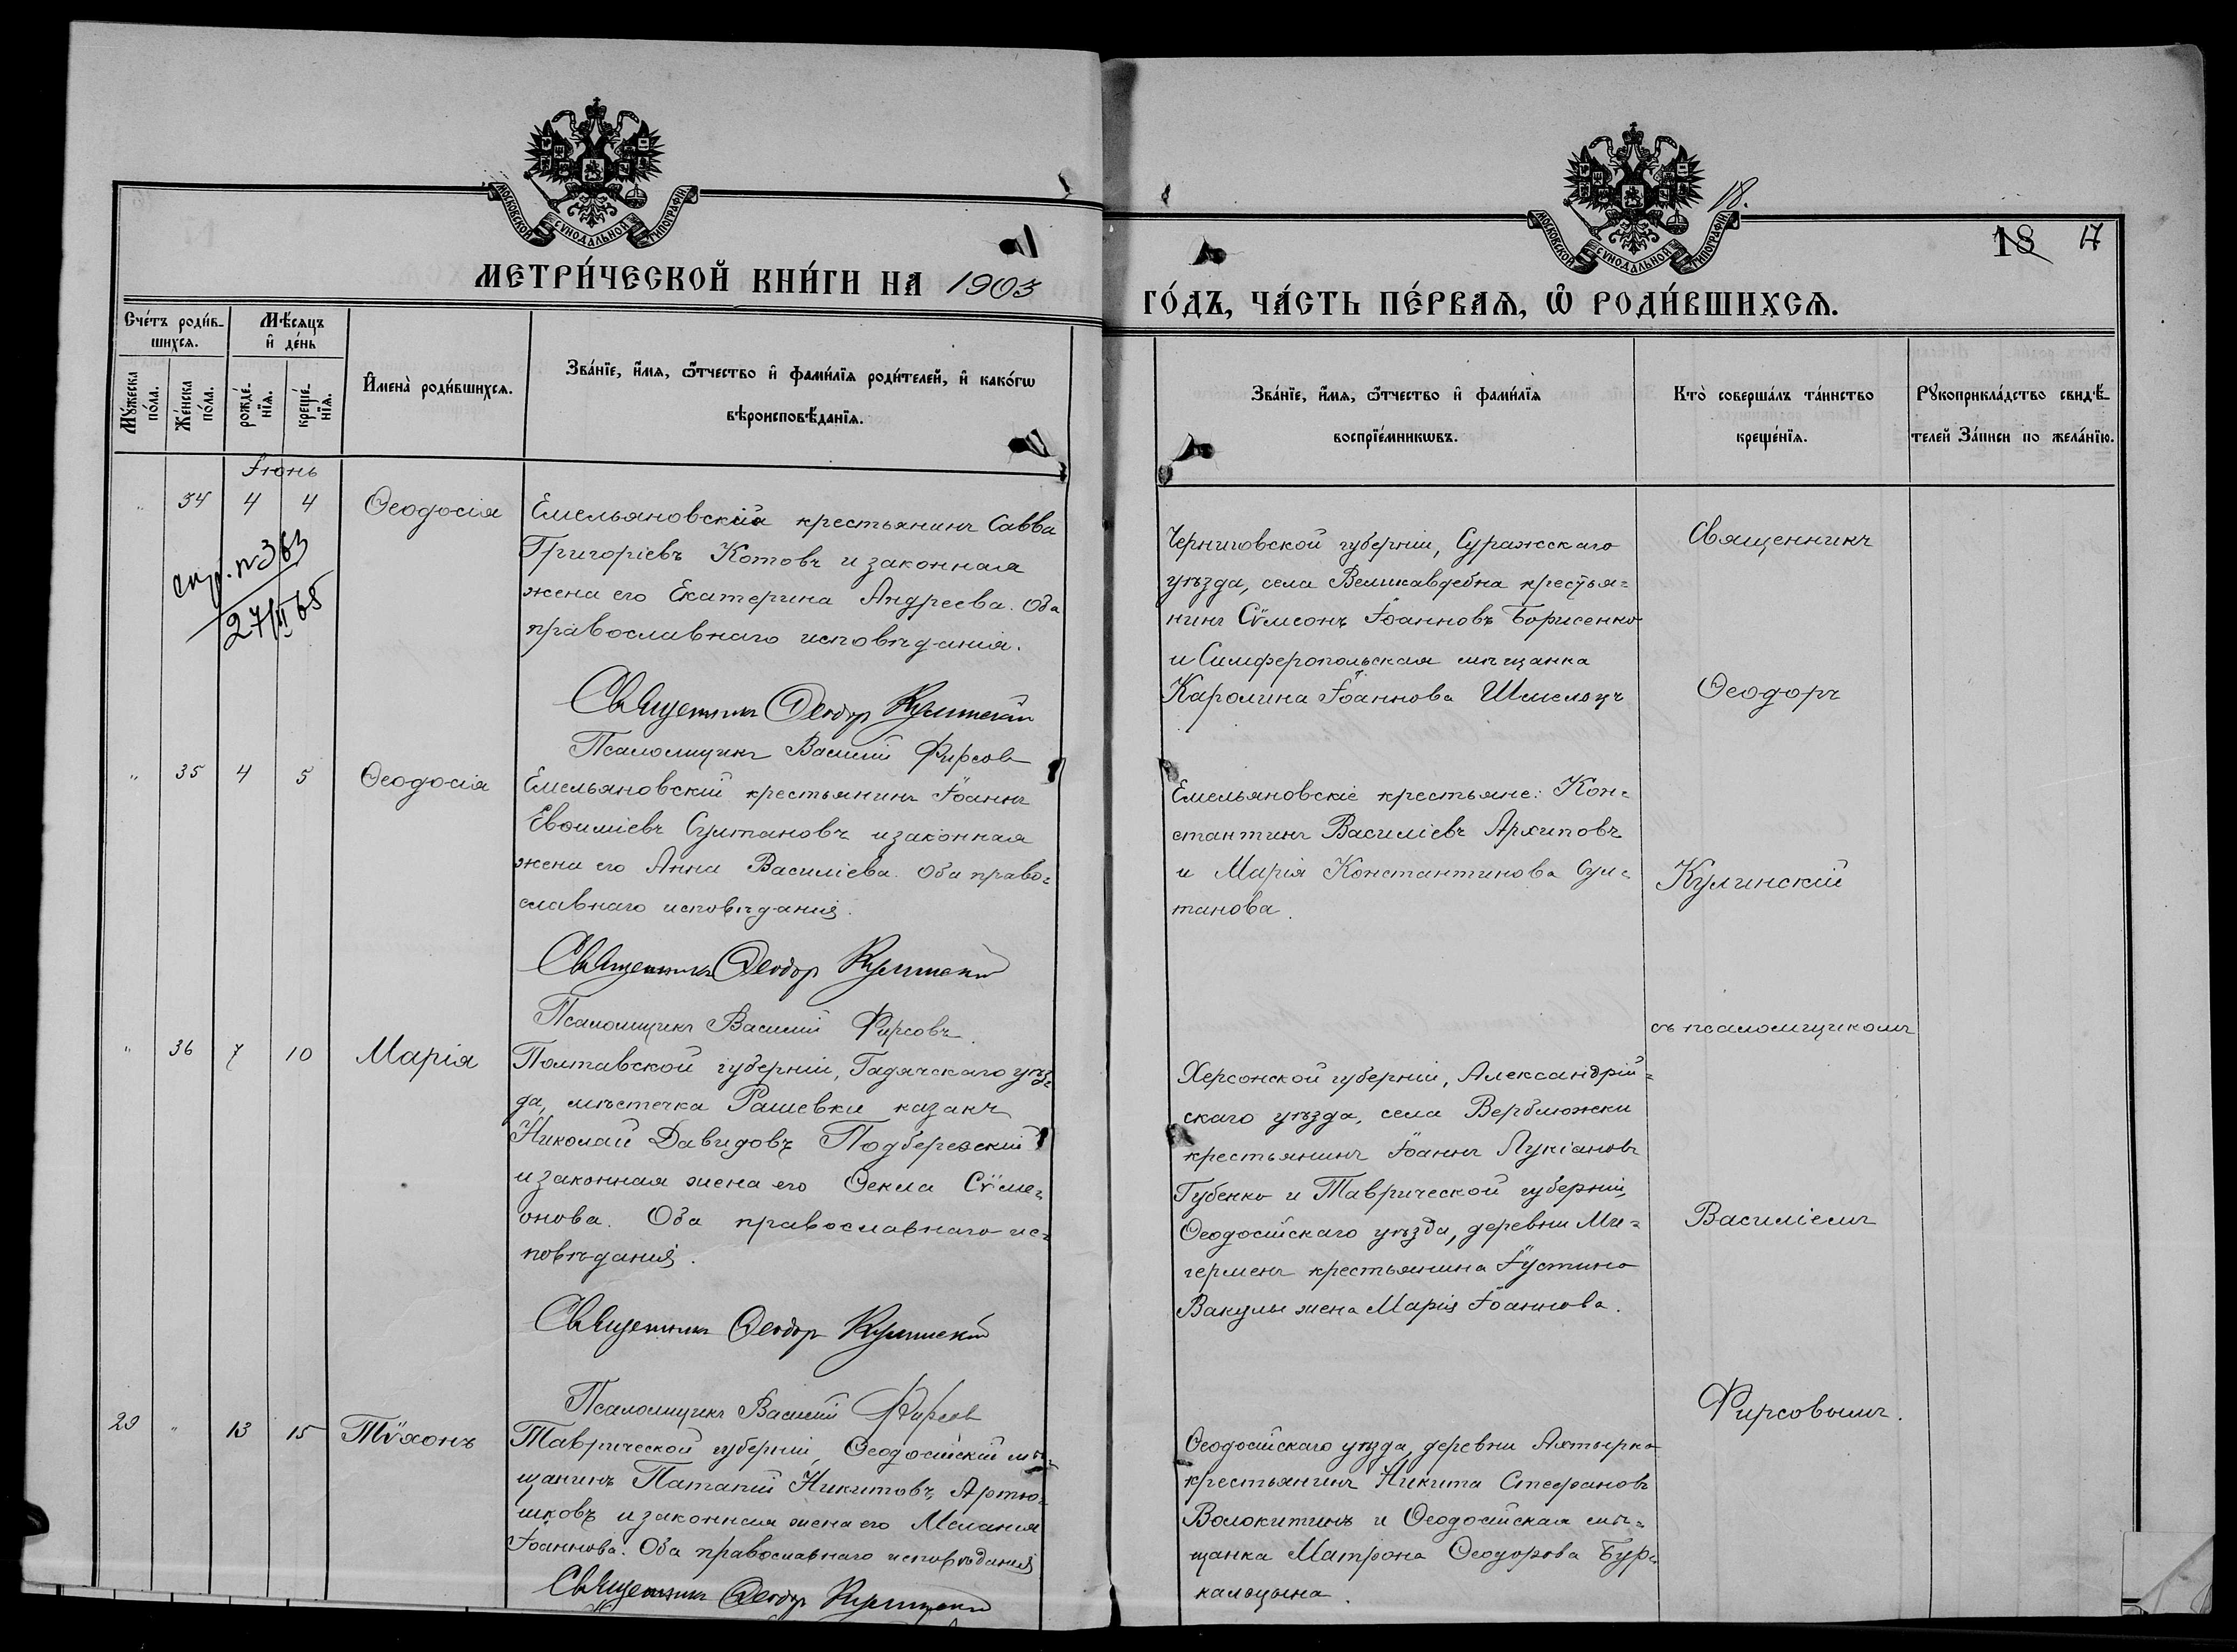 МОСКОВСКОЙ СѴНОДАЛЬНОЙ ТИПОГРАФІИ
МЕТРИ́ЧЕСКОЙ КНИ́ГИ НА 1903
Сче́тъ роди́в-
шихсѧ.
Мѣ́сѧцъ
и҆ де́нь
Мꙋ́жеска
по́ла.
Же́нска
по́ла.
рожде́-
нїѧ.
креще́-
нїѧ.
И҆мена̀ роди́вшихсѧ.
Зва́нїе, и҆́мѧ, ѻ҆́тчество и҆ фами́лїѧ роди́телей, и҆ како́гѡ
вѣроисповѣ́данїѧ.
Іюнь
" 34 4 4 Ѳеодосія
спр. № 363
27/II 65
Емельяновскій крестьянинъ Савва
Григоріевъ Котовъ и законная
жена его Екатерина Андреева. Оба
православнаго исповѣданія.
Священникъ Ѳеодор Кулинскій
Псаломщикъ Василій Фирсов
" 35 4 5 Ѳеодосія
Емельяновскій крестьянинъ Іоаннъ
Евѳиміевъ Султановъ и законная
жена его Анна Василіева. Оба право-
славнаго исповѣданія.
Священникъ Ѳеодор Кулинскій
Псаломщикъ Василій Фирсовъ.
" 36 7 10 Марія
Полтавской губерніи, Гадячскаго уѣз-
да, мѣстечка Рашевки казакъ
Николай Давидовъ Подберезскій
и законная жена его Ѳекла Сѵме-
онова. Оба православнаго ис-
повѣданія.
Священникъ Ѳеодор Кулинскій
Псаломщикъ Василій Фирсов
29 " 13 15 Тѵхонъ
Таврической губерніи, Ѳеодосійскій мѣ-
щанинъ Патапій Никитовъ Артю-
шковъ и законная жена его Меланія
Іоаннова. Оба православнаго исповѣданія
Священникъ Ѳеодор Кулинскій
МОСКОВСКОЙ СѴНОДАЛЬНОЙ ТИПОГРАФІИ
18.
18 17
ГО́ДЪ, ЧА́СТЬ ПЕ́РВАѦ, Ѡ҆ РОДИ́ВШИХСѦ.
Зва́нїе, и҆́мѧ, ѻ҆́тчество и҆ фами́лїѧ
воспрїе́мникѡвъ.
Кто̀ соверша́лъ та́инство
креще́нїѧ.
Рꙋкоприкла́дство свидѣ́-
телей за́писи по жела́нїю.
Черниговской губерніи, Суражскаго
уѣзда, села крестья-
нинъ Сѵмеонъ Іоанновъ Борисенко
и Симферопольская мѣщанка
Каролина Іоаннова Шмельцъ
Емельяновскіе крестьяне: Кон-
стантинъ Василіевъ Архиповъ
и Марія Константинова Сул-
танова.
Херсонской губерніи, Александрій-
скаго уѣзда, села Верблюжки
крестьянинъ Іоаннъ Лукіановъ
Губенко и Таврической губерніи,
Ѳеодосійскаго уѣзда, деревни Ми-
германъ крестьянина Іустина
Вакулы жена Марія Іоаннова.
Ѳеодосійскаго уѣзда, деревни Ахтырка
крестьянинъ Никита Стефановъ
Волокитинъ и Ѳеодосійская мѣ-
щанка Матрона Ѳеодорова Бур-
кальцына.
Священникъ
Ѳеодоръ
Кулинскій
съ псаломщикомъ
Василіемъ
Фирсовымъ.